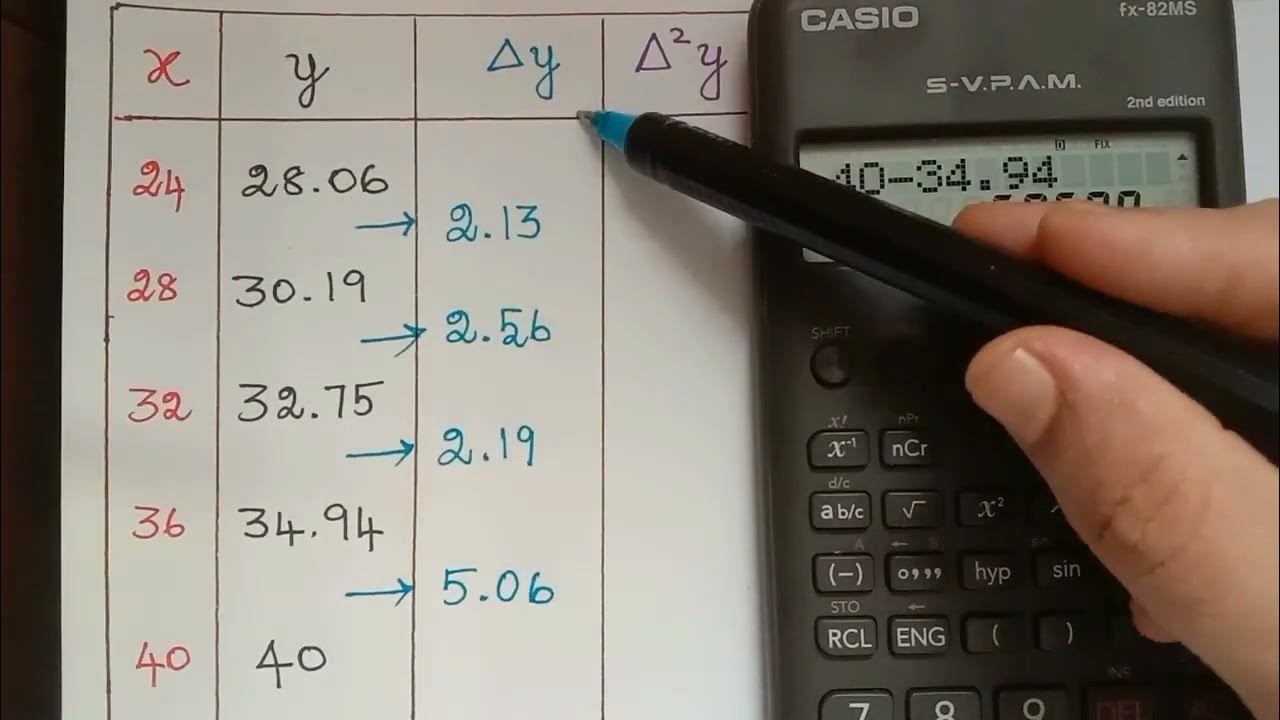 x y Δy Δ²y
24 28.06
→ 2.13
28 30.19
→ 2.56
32 32.75
→ 2.19
36 34.94
→ 5.06
40 40
CASIO
fx-82MS
S-V.P.A.M.
2nd edition
FIX
40-34.94
SHIFT
x! nPr
x⁻¹ nCr
d/c
a b/c √ x²
A B
(-) o,,, hyp sin
STO ←
RCL ENG ( )
INS
7 8 9 DEL